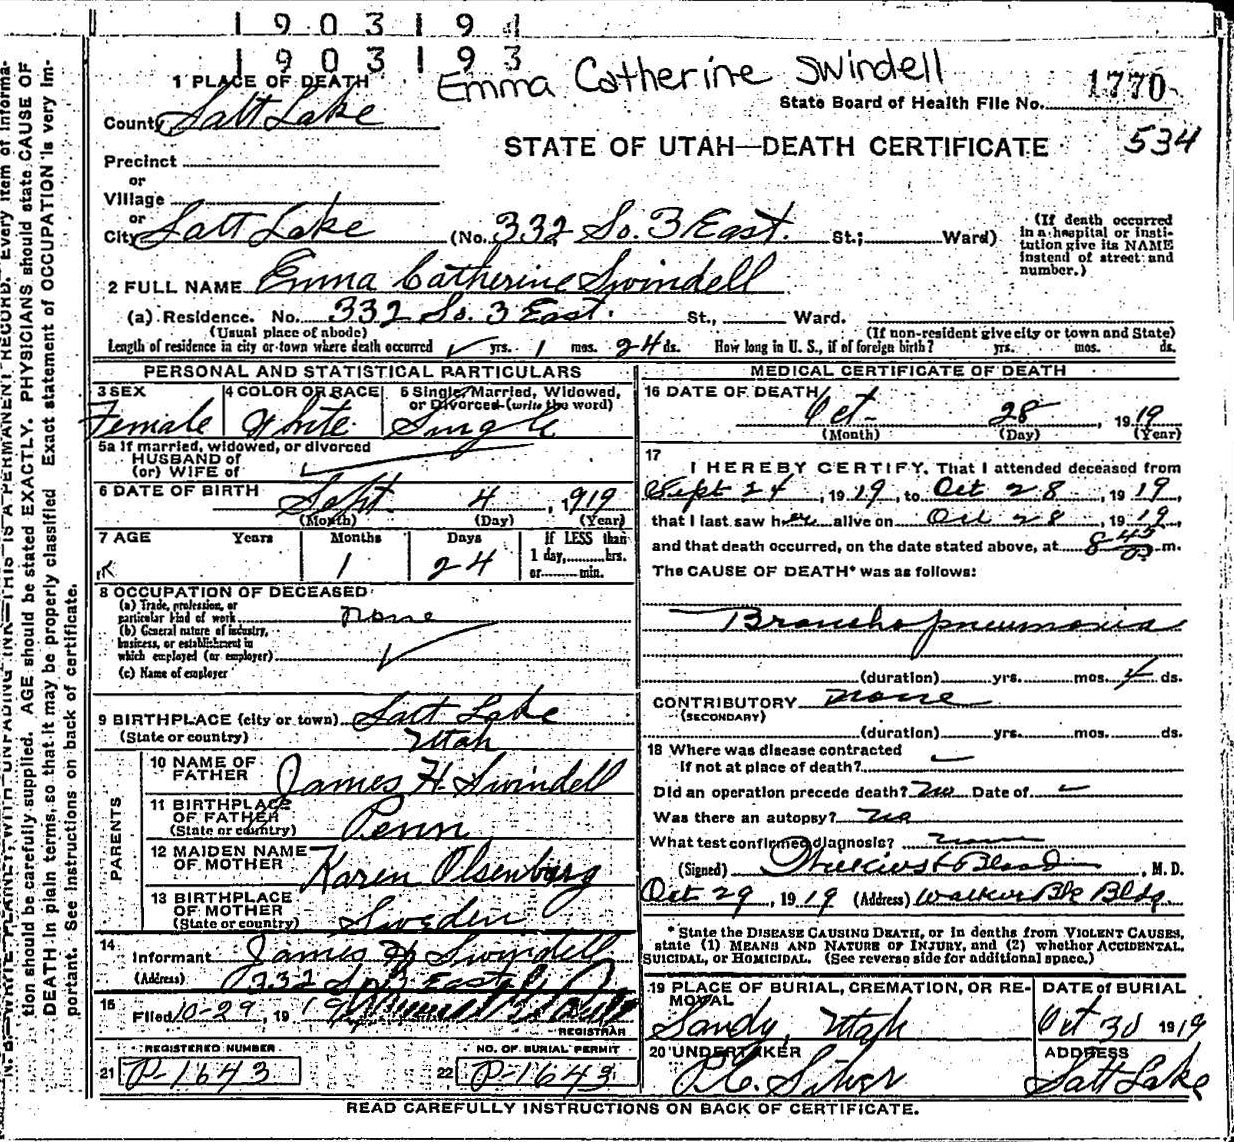 1903194
1903193
Emma Catherine Swindell
1 PLACE OF DEATH
State Board of Health File No. 1770
County Salt Lake
STATE OF UTAH—DEATH CERTIFICATE 534
Precinct
or
Village
or
City Salt Lake (No. 332 So. 3 East. St.; Ward)
(If death occurred in a hospital or institution give its NAME instead of street and number.)
2 FULL NAME Emma Catherine Swindell
(a) Residence. No. 332 So. 3 East. St., Ward.
(Usual place of abode) (If non-resident give city or town and State)
Length of residence in city or town where death occurred yrs. 1 mos. 24 ds. How long in U. S., if of foreign birth? yrs. mos. ds.
PERSONAL AND STATISTICAL PARTICULARS
3 SEX 4 COLOR OR RACE 5 Single, Married, Widowed,
or Divorced (write the word)
Female White Single
5a If married, widowed, or divorced
HUSBAND of
(or) WIFE of
6 DATE OF BIRTH Sept. 4, 1919
(Month) (Day) (Year)
7 AGE Years Months Days If LESS than
1 day, hrs.
or min.
1 24
8 OCCUPATION OF DECEASED
(a) Trade, profession, or
particular kind of work none
(b) General nature of industry,
business, or establishment in
which employed (or employer)
(c) Name of employer
9 BIRTHPLACE (city or town) Salt Lake
(State or country) Utah
PARENTS
10 NAME OF
FATHER James H. Swindell
11 BIRTHPLACE
OF FATHER
(State or country) Penn
12 MAIDEN NAME
OF MOTHER Karen Olsenburg
13 BIRTHPLACE
OF MOTHER
(State or country) Sweden
14
Informant James H Swindell
(Address) 332 So 3 East
15
Filed 10-29, 19 19
REGISTRAR
REGISTERED NUMBER NO. OF BURIAL PERMIT
21 P-1643 22 P-1643
MEDICAL CERTIFICATE OF DEATH
16 DATE OF DEATH
Oct. 28, 1919
(Month) (Day) (Year)
17
I HEREBY CERTIFY, That I attended deceased from
Sept 24, 1919, to Oct 28, 1919,
that I last saw her alive on Oct 28, 1919,
and that death occurred, on the date stated above, at 8 45 m.
The CAUSE OF DEATH* was as follows:
Broncho pneumonia
(duration) yrs. mos. 4 ds.
CONTRIBUTORY none
(SECONDARY)
(duration) yrs. mos. ds.
18 Where was disease contracted
If not at place of death?
Did an operation precede death? no Date of
Was there an autopsy? no
What test confirmed diagnosis? none
(Signed) , M. D.
Oct 29, 1919 (Address) Walker Bk Bldg.
*State the DISEASE CAUSING DEATH, or in deaths from VIOLENT CAUSES,
state (1) MEANS AND NATURE OF INJURY, and (2) whether ACCIDENTAL,
SUICIDAL, or HOMICIDAL. (See reverse side for additional space.)
19 PLACE OF BURIAL, CREMATION, OR RE-
MOVAL DATE OF BURIAL
Sandy, Utah Oct 30 1919
20 UNDERTAKER ADDRESS
Salt Lake
READ CAREFULLY INSTRUCTIONS ON BACK OF CERTIFICATE.
N. B.—WRITE PLAINLY, WITH UNFADING INK—THIS IS A PERMANENT RECORD. Every item of informa-
tion should be carefully supplied. AGE should be stated EXACTLY. PHYSICIANS should state CAUSE OF
DEATH in plain terms, so that it may be properly classified. Exact statement of OCCUPATION is very im-
portant. See instructions on back of certificate.